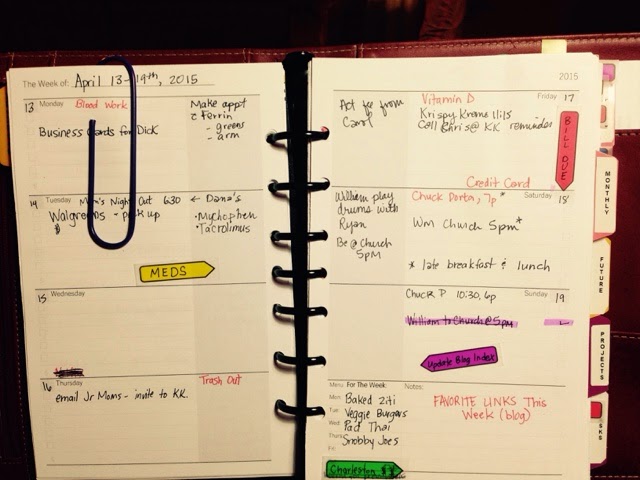 The Week of: April 13-19th, 2015
13 Monday Blood Work
Make appt
c Ferrin
- greens
- arm
Business Cards for Dick
14 Tuesday Mom's Night Out 6:30 ← Dana's
Walgreens - pick up
$
• Mycophen
• Tacrolimus
MEDS
15 Wednesday
16 Thursday
Trash Out
email Jr Moms - invite to KK.
2015
Friday 17
Act fee from
Carol
Vitamin D
Krispy Kreme 11:15
Call Chris @ KK reminder
BILL DUE
Credit Card
Saturday 18
William play
drums with
Ryan
Be @ Church
5PM
Chuck Dorta, 7p*
Wm Church 5pm*
* late breakfast & lunch
Sunday 19
Chuck P 10:30, 6p
William to Church @ 5pm
Update Blog Index
Menu For The Week:
Mon: Baked Ziti
Tue: Veggie Burgers
Wed: Pad Thai
Thurs: Snobby Joes
Fri:
Notes:
FAVORITE LINKS This
Week (blog)
Charleston $$
MONTHLY
FUTURE
PROJECTS